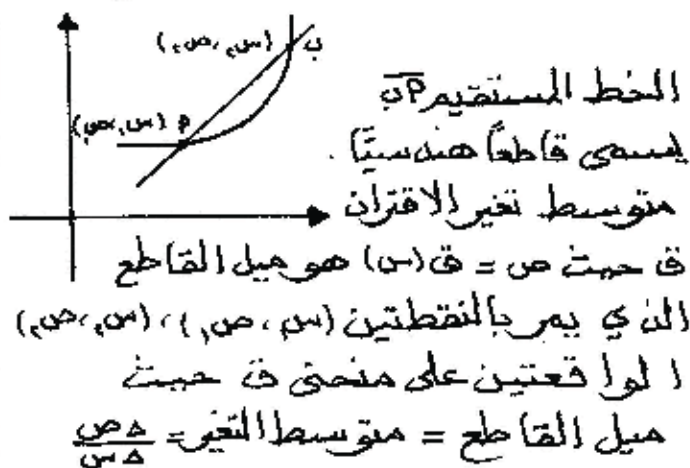 (س٢، ص٢) ب
(س١، ص١) م
الخط المستقيم م ب
يسمى قاطعاً هندسيّاً .
متوسط تغير الاقتران
ق حيث ص = ق(س) هو ميل القاطع
الذي يمر بالنقطتين (س١، ص١)، (س٢، ص٢)
الواقعتين على منحنى ق حيث
ميل القاطع = متوسط التغير = Δص/Δس